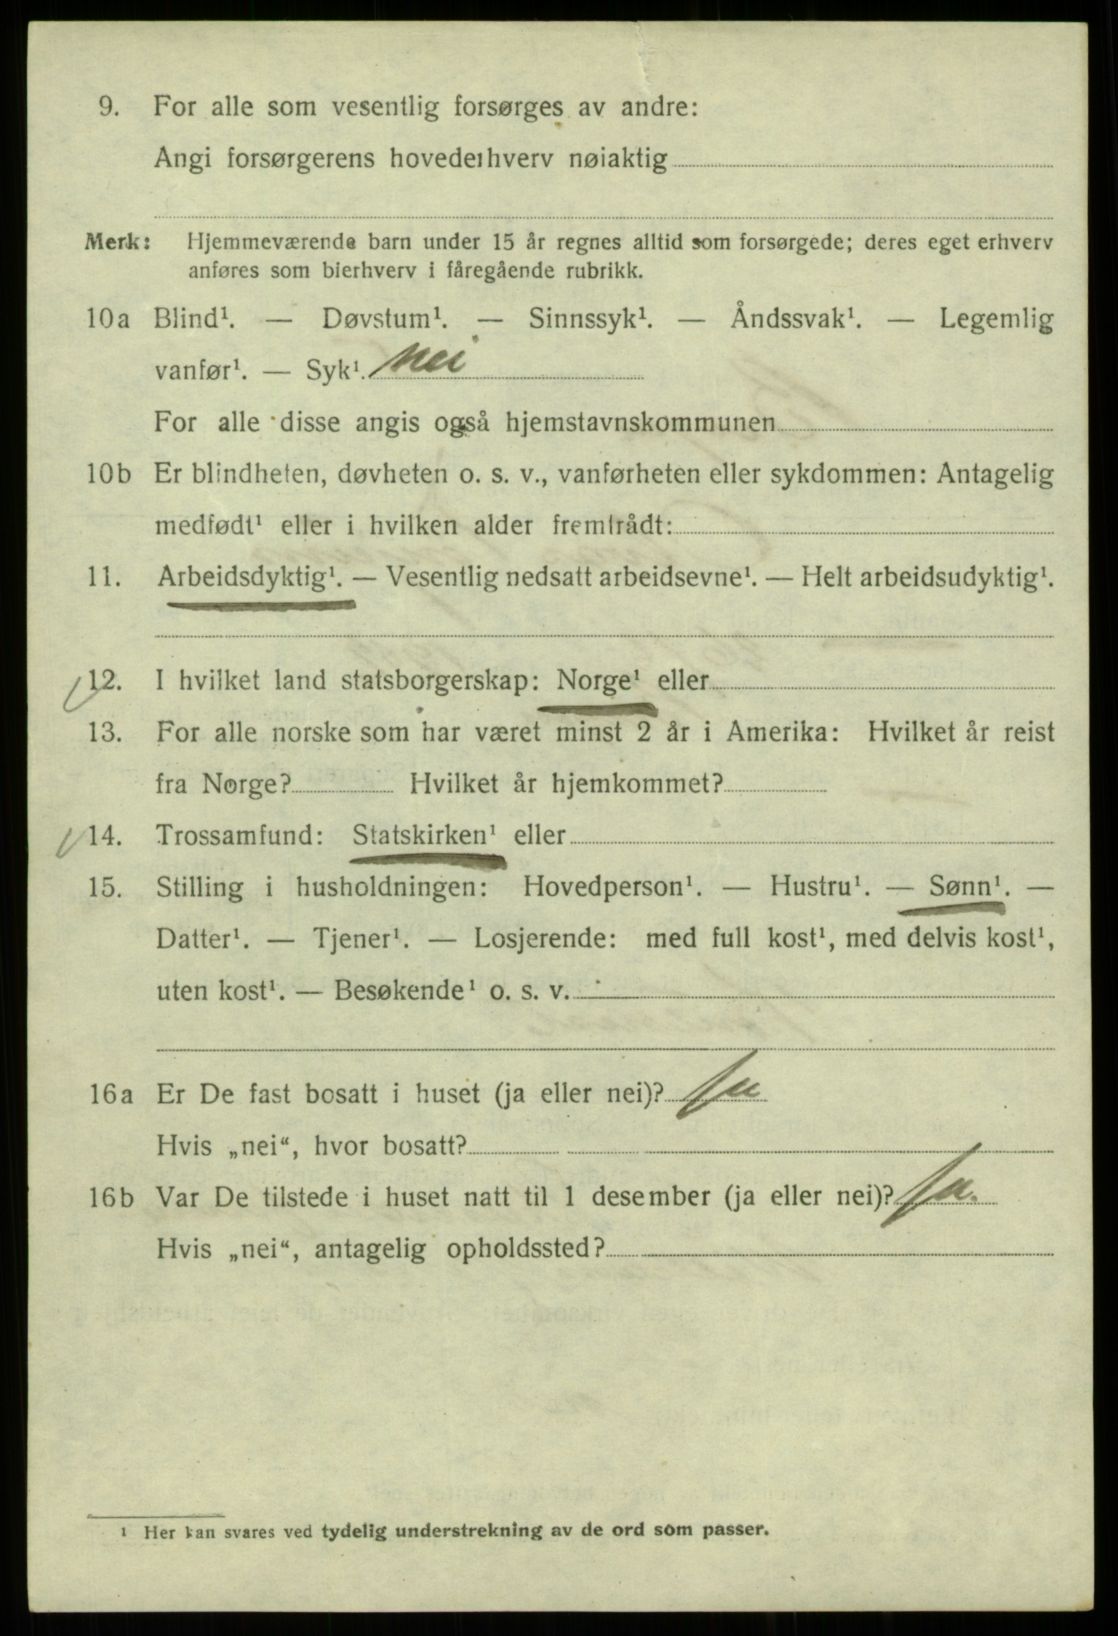 9. For alle som vesentlig forsørges av andre:
Angi forsørgerens hovederhverv nøiaktig
Merk: Hjemmeværende barn under 15 år regnes alltid som forsørgede; deres eget erhverv
anføres som bierhverv i fåregående rubrikk.
10a Blind¹. — Døvstum¹. — Sinnssyk¹. — Åndssvak¹. — Legemlig
vanfør¹. — Syk¹. Nei
For alle disse angis også hjemstavnskommunen
10b Er blindheten, døvheten o. s. v., vanførheten eller sykdommen: Antagelig
medfødt¹ eller i hvilken alder fremtrådt:
11. Arbeidsdyktig¹. — Vesentlig nedsatt arbeidsevne¹. — Helt arbeidsudyktig¹.
12. I hvilket land statsborgerskap: Norge¹ eller
13. For alle norske som har været minst 2 år i Amerika: Hvilket år reist
fra Norge? Hvilket år hjemkommet?
14. Trossamfund: Statskirken¹ eller
15. Stilling i husholdningen: Hovedperson¹. — Hustru¹. — Sønn¹. —
Datter¹. — Tjener¹. — Losjerende: med full kost¹, med delvis kost¹,
uten kost¹. — Besøkende¹ o. s. v.
16a Er De fast bosatt i huset (ja eller nei)? Ja
Hvis „nei“, hvor bosatt?
16b Var De tilstede i huset natt til 1 desember (ja eller nei)? Ja.
Hvis „nei“, antagelig opholdssted?
¹ Her kan svares ved tydelig understrekning av de ord som passer.